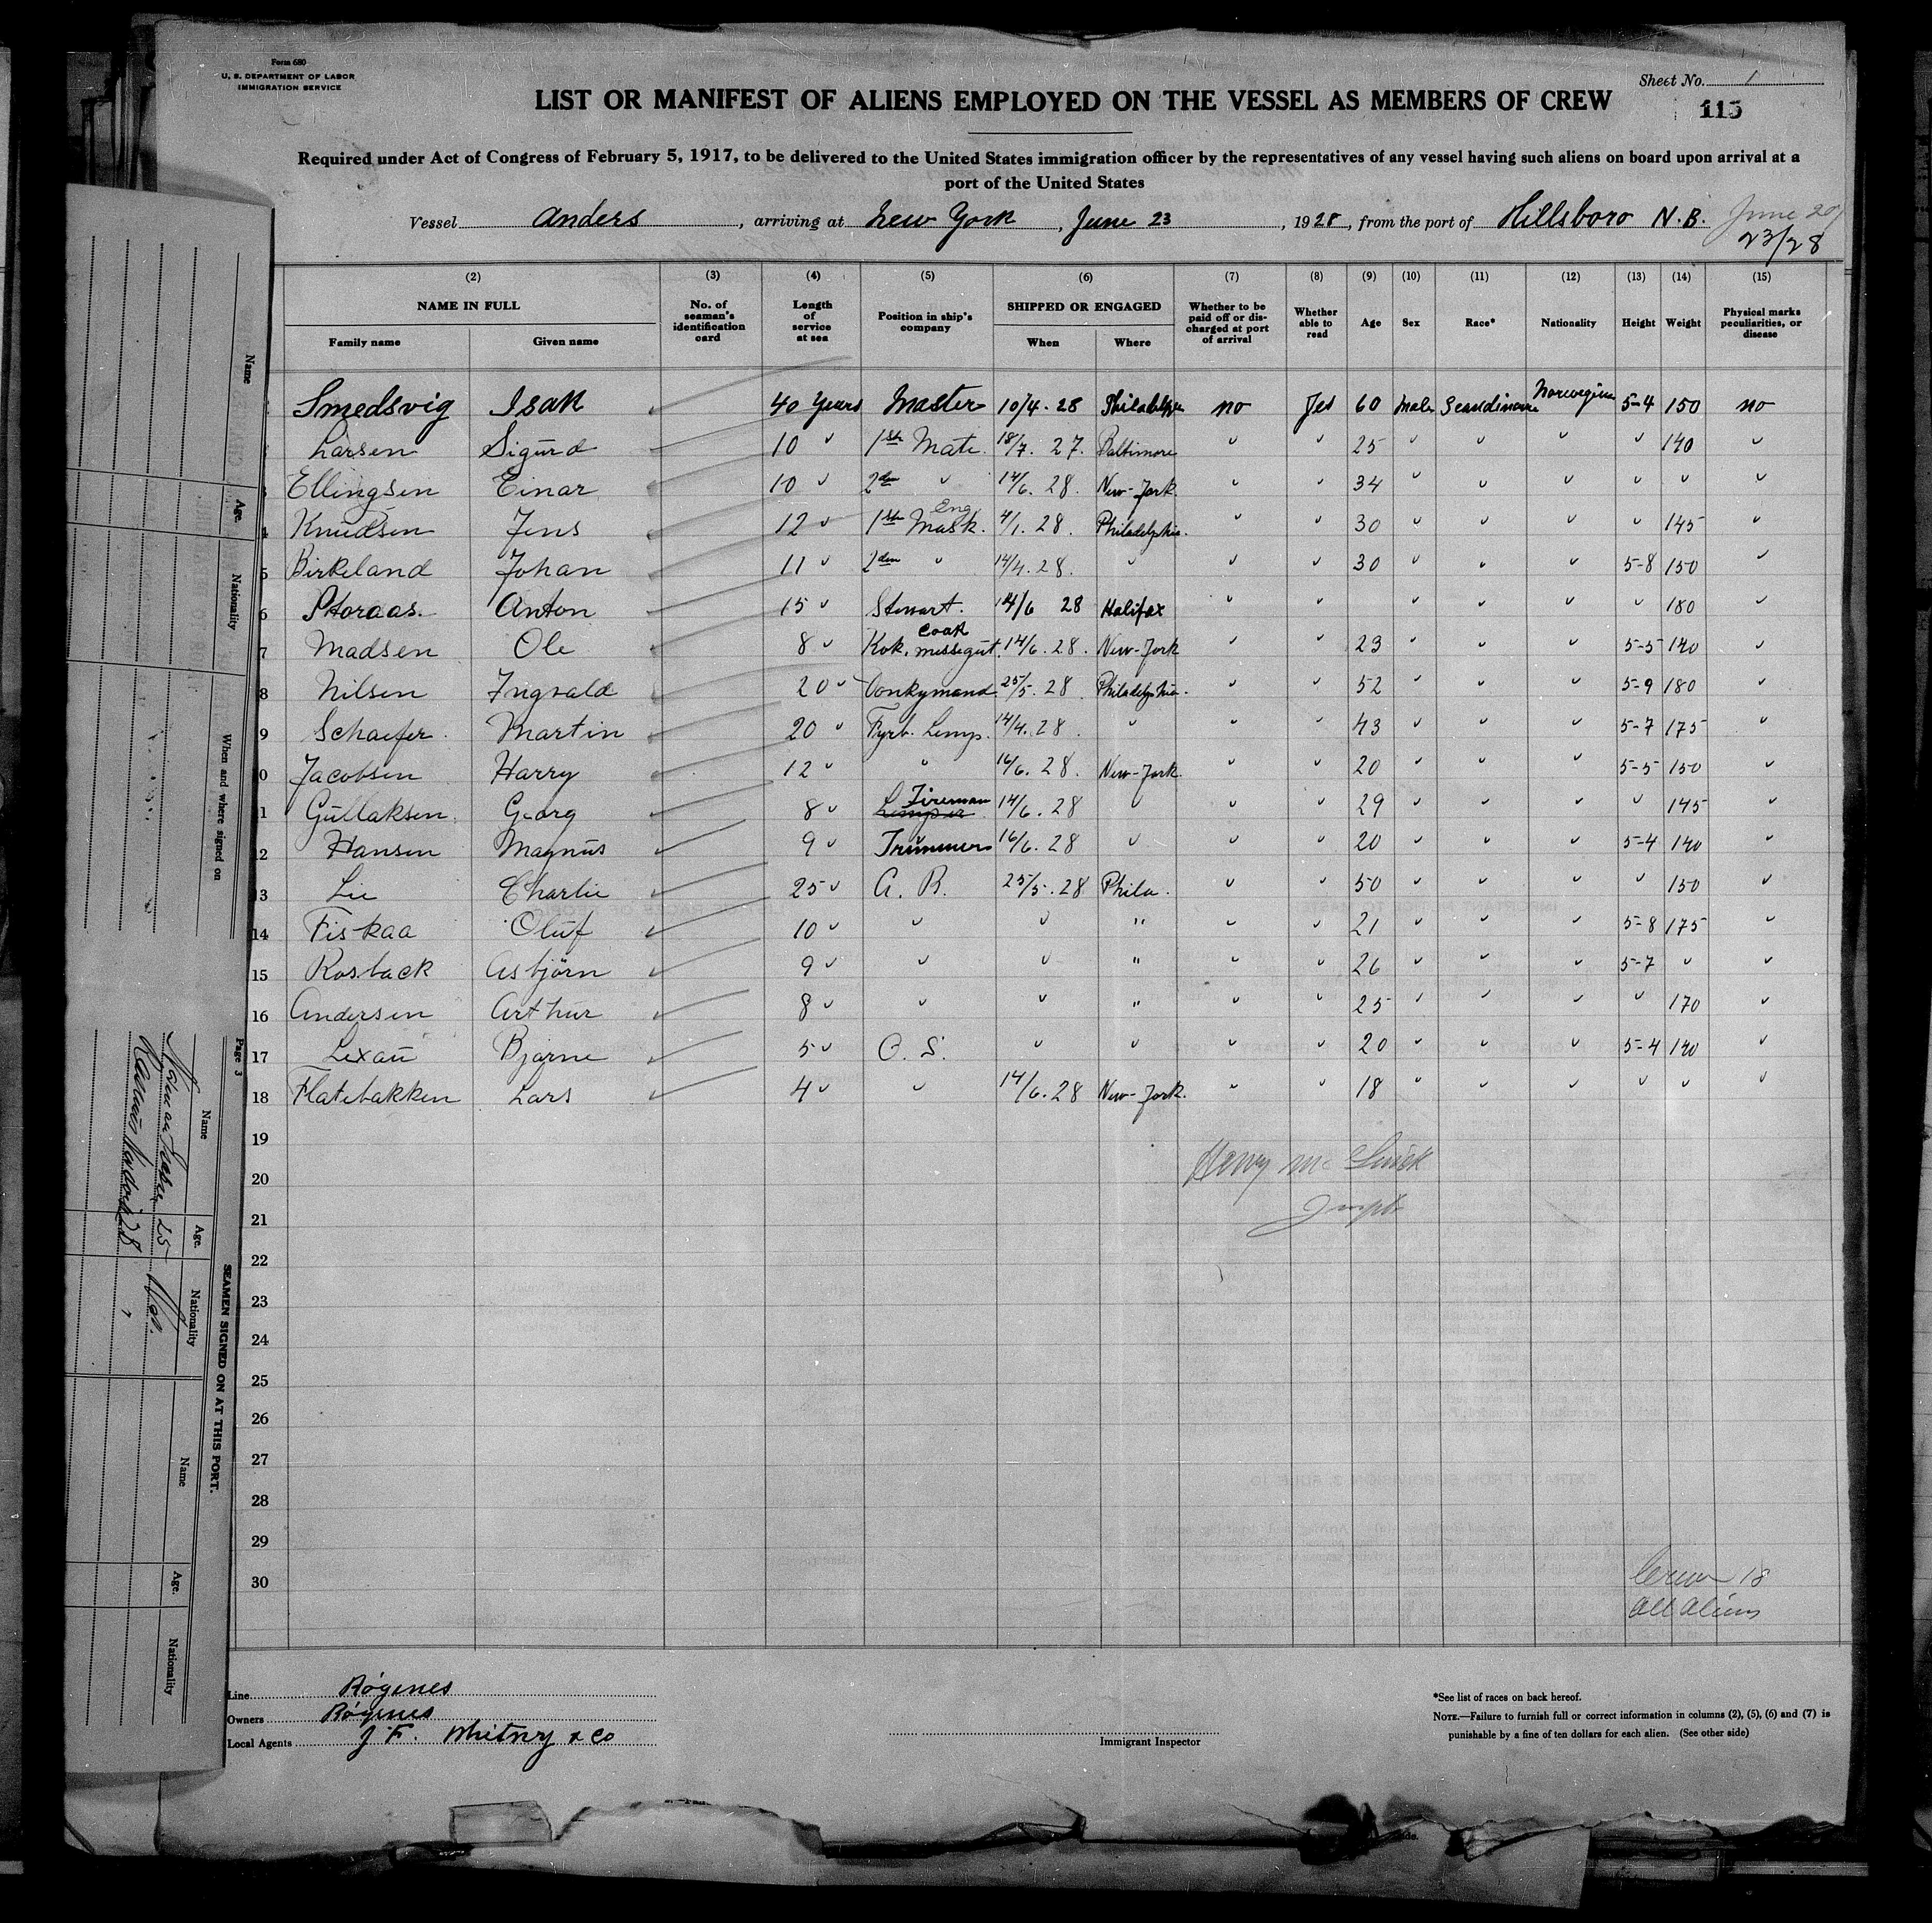 Form 680
U. S. DEPARTMENT OF LABOR
IMMIGRATION SERVICE
Sheet No. 1
LIST OR MANIFEST OF ALIENS EMPLOYED ON THE VESSEL AS MEMBERS OF CREW
115
Required under Act of Congress of February 5, 1917, to be delivered to the United States immigration officer by the representatives of any vessel having such aliens on board upon arrival at a
port of the United States
Vessel Anders, arriving at New York, June 23, 1928, from the port of Hillsboro N.B. June 20/
23/28
(2) (3) (4) (5) (6) (7) (8) (9) (10) (11) (12) (13) (14) (15)
NAME IN FULL
Family name Given name
No. of seaman's identification card
Length of service at sea
Position in ship's company
SHIPPED OR ENGAGED
When Where
Whether to be paid off or discharged at port of arrival
Whether able to read
Age Sex Race* Nationality Height Weight
Physical marks peculiarities, or disease
Smedsvig Isak ✓ 40 Years Master 10/4. 28 Philadelphia no Yes 60 Male Scandinavian Norwegian 5-4 150 no
Larsen Sigurd 10 " 1st Mate. 18/7. 27. Baltimore " " 25 " " " " 140 "
3 Ellingsen Einar 10 " 2den " 14/6. 28. New-York " " 34 " " " " " "
4 Knudsen Jens 12 " 1st Mask. Eng 4/1. 28. Philadelphia. " " 30 " " " " 145 "
5 Birkeland Johan 11 " 2den " 14/4. 28. " " " 30 " " " 5-8 150 "
6 Storaas. Anton 15 " Stewart. 14/6 28 Halifax " " " " " " 180 "
7 Madsen Ole 8 " Kok, messegut. Cook 14/6. 28. New-York " " 23 " " " 5-5 140 "
8 Nilsen Ingvald 20 " Donkymand 25/5. 28 Philadelphia. " " 52 " " " 5-9 180 "
9 Schaefer. Martin 20 " Fyrb. Lemp. 14/4. 28. " " " 43 " " " 5-7 175 "
10 Jacobsen Harry 12 " " 16/6. 28. New-York. " " 20 " " " 5-5 150 "
11 Gullaksen. Georg 8 " Lemper Fireman 14/6. 28 " " " 29 " " " " 145 "
12 Hansen Magnus ✓ 9 " Trimmer 16/6. 28 " " " 20 " " " 5-4 140 "
13 Lie Charlie ✓ 25 " A. B. 25/5. 28 Phila. " " 50 " " " " 150 "
14 Fiskaa Oluf ✓ 10 " " " " " " 21 " " " 5-8 175 "
15 Rosback Asbjörn ✓ 9 " " " " " " 26 " " " 5-7 " "
16 Andersen Arthur ✓ 8 " " " " " " 25 " " " " 170 "
17 Lexau Bjarne ✓ 5 " O. S. " " " " 20 " " " 5-4 140 "
18 Flatebakken Lars ✓ 4 " " 14/6. 28 New-York. " " 18 " " " " " "
19
20 Harry Mc
21
22
23
24
25
26
27
28
29
30
Crew 18
all aliens
Line Røgenes
Owners Røgenes
Local Agents J. F. Whitny & Co
Immigrant Inspector
*See list of races on back hereof.
NOTE.—Failure to furnish full or correct information in columns (2), (5), (6) and (7) is
punishable by a fine of ten dollars for each alien. (See other side)
Name
Age.
Nationality
When and where signed on
Page 3
SEAMEN SIGNED ON AT THIS PORT.
Name
Age.
Nationality
25 Nor.
28 "
Name
Age.
Nationality